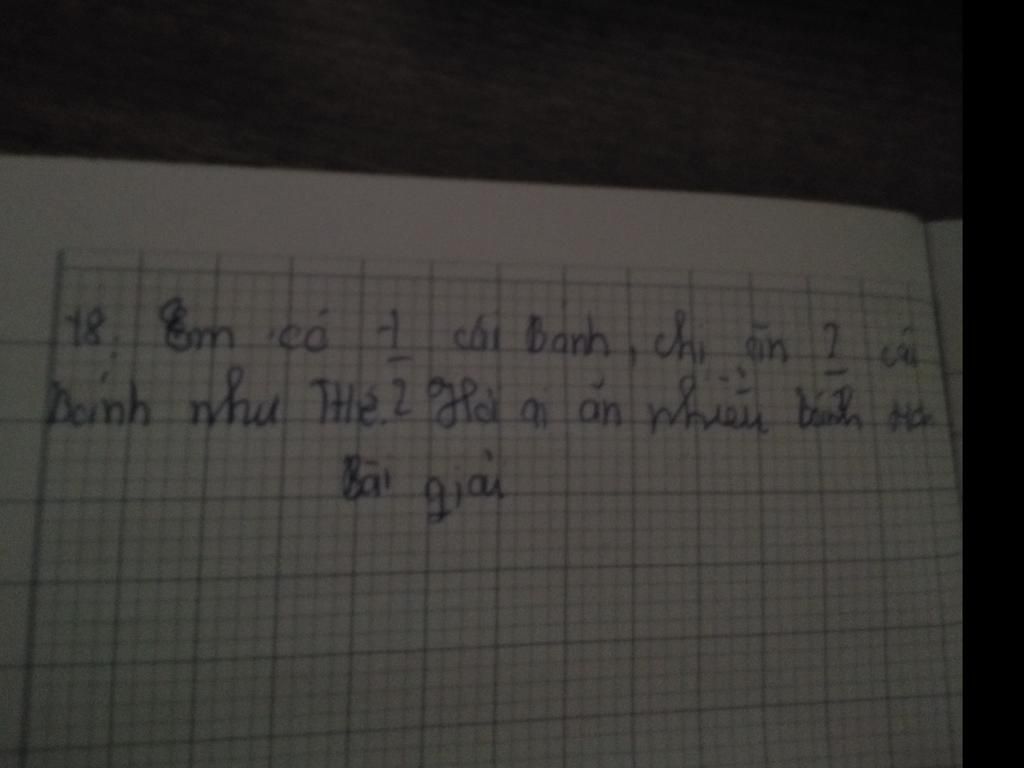 18. Em có 1/2 cái bánh, chị ăn 2 cái
bánh như thế. Hỏi ai ăn nhiều bánh
Bài giải